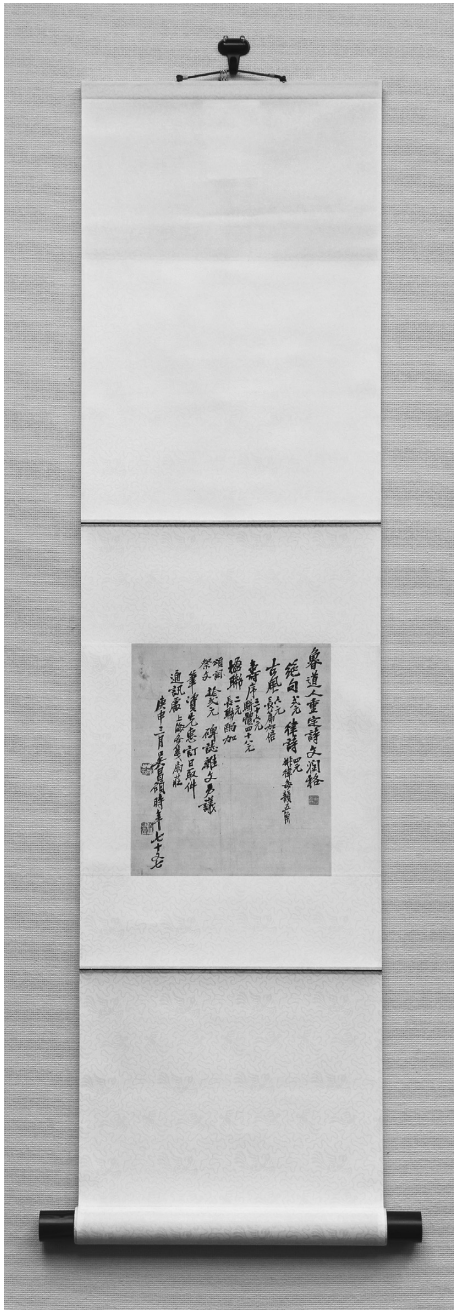 鲁道人重定詩文潤格
絕句 弍元 律詩 四元 排律每韻五角
古風 八元 長篇加倍
壽序 三十元 駢體四十元
楹聯 二元 長聯酌加
頌詞 祭文 拾弍元 碑誌雜文另議
筆資先惠訂日取件
通訊處上海
庚申三月吴昌碩時年七十七